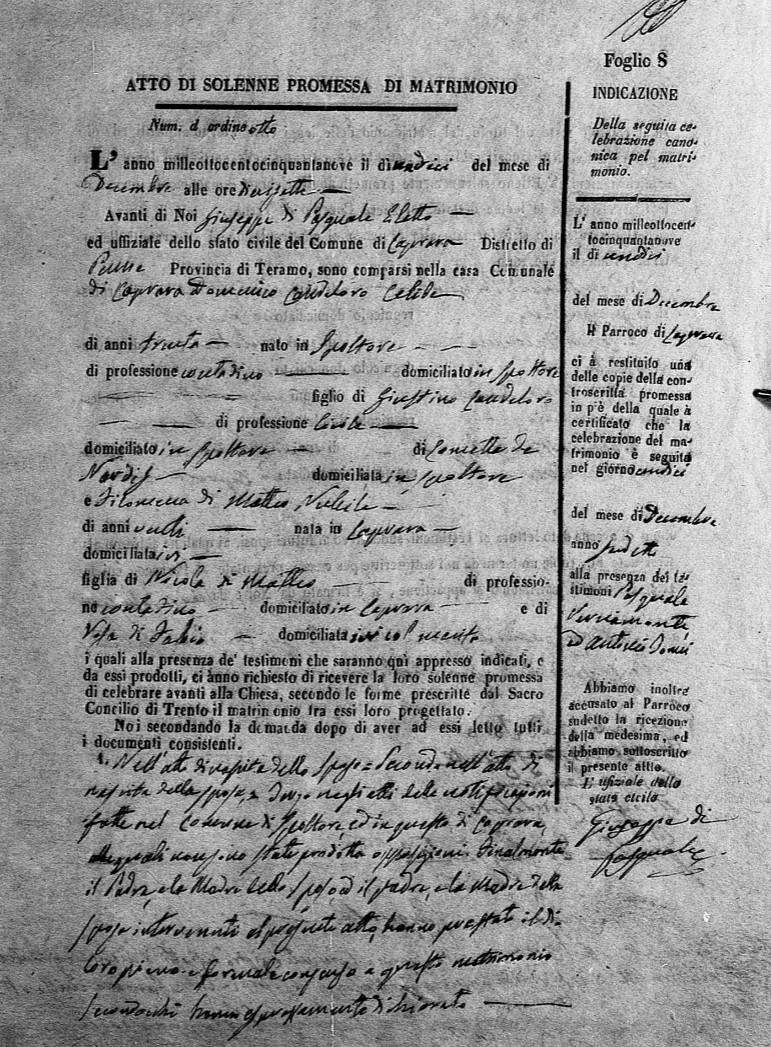 Foglio 8
ATTO DI SOLENNE PROMESSA DI MATRIMONIO
Num. d ordine otto
L' anno milleottocentocinquantanove il dì undici del mese di
Decembre alle ore
Avanti di Noi Giuseppe di Pasquale Eletto
ed uffiziale dello stato civile del Comune di Caprara Distretto di
Penne Provincia di Teramo, sono comparsi nella casa Comunale
di Caprara Domenico Candeloro Celibe
di anni trenta nato in Spoltore
di professione contadino domiciliato in Spoltore
figlio di Giustino Candeloro
di professione civile
domiciliato in Spoltore di Concetta de
Nardis domiciliata in Spoltore
e Filomena di Matteo Nubile
di anni venti nata in Caprara
domiciliata ivi
figlia di Nicola di Matteo di professio-
ne contadino domiciliato in Caprara e di
Rosa di Fabio domiciliata ivi col marito
i quali alla presenza de' testimoni che saranno quì appresso indicati, e
da essi prodotti, ci anno richiesto di ricevere la loro solenne promessa
di celebrare avanti alla Chiesa, secondo le forme prescritte dal Sacro
Concilio di Trento il matrimonio tra essi loro progettato.
Noi secondando la domanda dopo di aver ad essi letto tutti
i documenti consistenti.
1. Nell'atto di nascita dello sposo = Secondo nell'atto di
nascita della sposa, e Terzo negli atti delle notificazioni
fatte nel Comune di Spoltore ed in questo di Caprara,
alle quali non sono state prodotte opposizioni. Finalmente
il Padre, e la Madre dello sposo, ed il padre, e la Madre della
sposa intervenuti al presente atto, hanno prestato il di
loro pieno e formale consenso a questo matrimonio
secondochè hanno espressamente dichiarato
INDICAZIONE
Della seguita ce-
lebrazione cano-
nica pel matri-
monio.
L' anno milleottocen-
tocinquantanove
il di undici
del mese di Decembre
Il Parroco di Caprara
ci à restituito una
delle copie della con-
troscritta promessa
in p'è della quale à
certificato che la
celebrazione del ma-
trimonio è seguita
nel giorno undici
del mese di Decembre
anno sudetto
alla presenza dei te-
stimoni Pasquale
d'Antonio
Abbiamo inoltre
accusato al Parroco
sudetto la ricezione
della medesima, ed
abbiamo sottoscritto
il presente atto.
L' ufiziale dello
stato civile
Giuseppe di
Pasquale